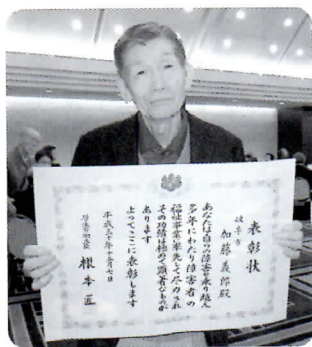 表彰状
岐阜市
加藤義郎殿
あなたは自らの障害を乗り越え
多年にわたり障害者の
福祉事業に率先して尽力され
その功績は極めて顕著なものが
あります
よってここに表彰します
平成三十年十二月七日
厚生労働大臣 根本匠